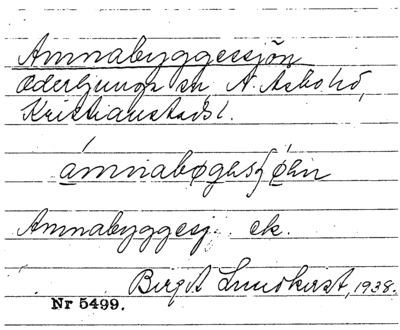 Amnabyggessjön
Oderljunga sn N. Åsbo hd,
Kristianstads l.
ámnabøgɩsʃøɩn
Amnabyggesj. ek.
Birgit Lundkvist, 1938.
Nr 5499.